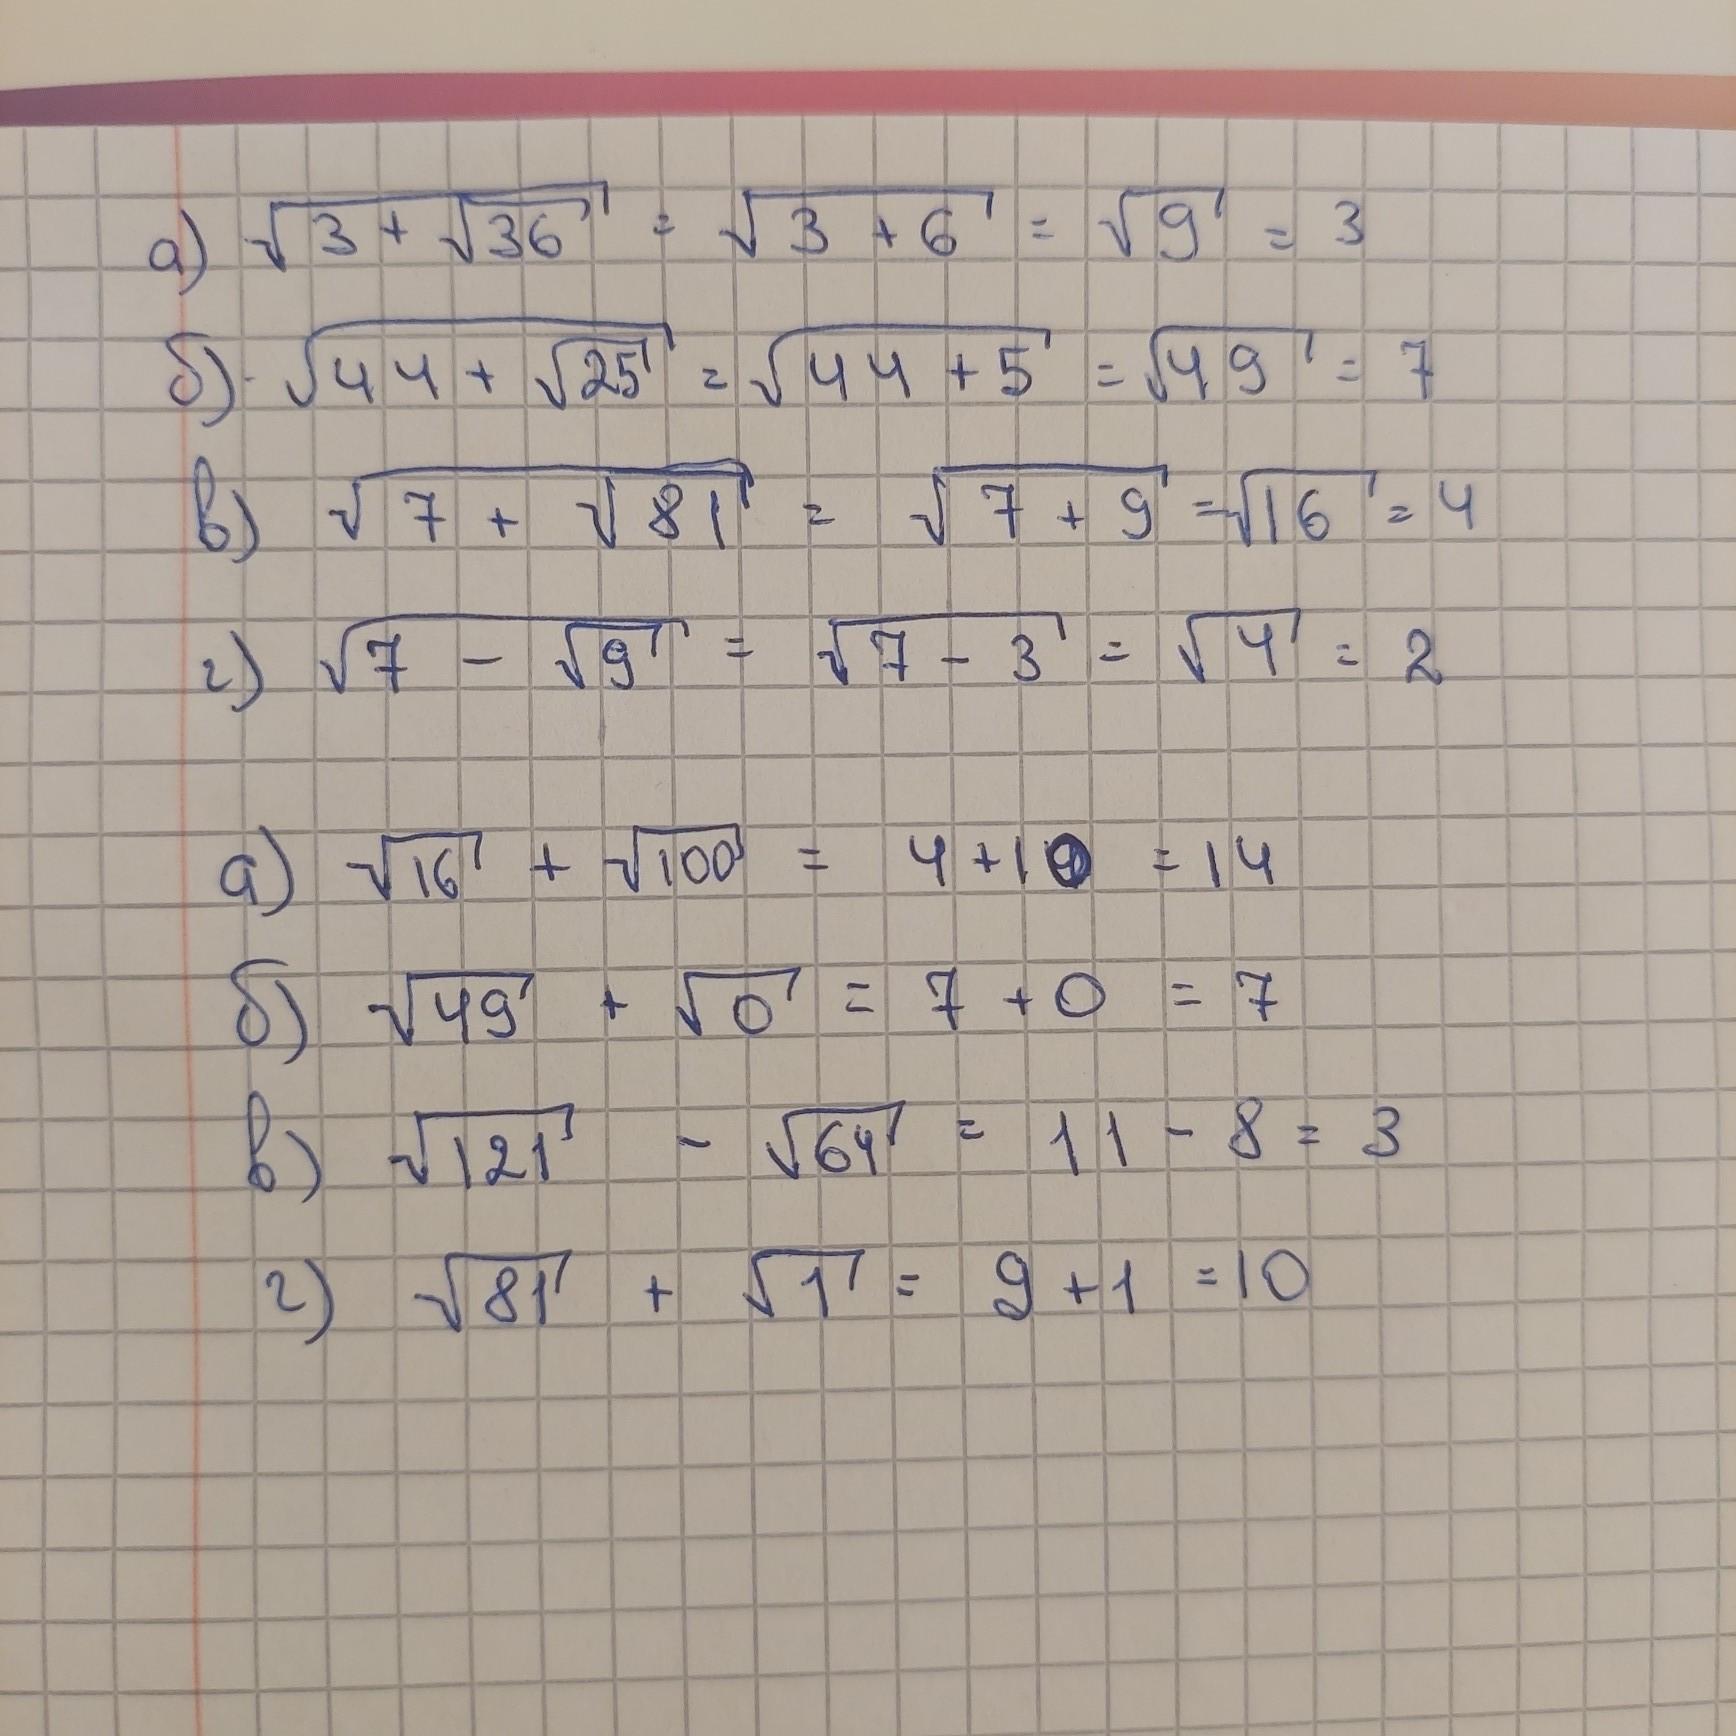 а) √(3 + √36) = √(3 + 6) = √9 = 3
б) √(44 + √25) = √(44 + 5) = √49 = 7
в) √(7 + √81) = √(7 + 9) = √16 = 4
г) √(7 - √9) = √(7 - 3) = √4 = 2
а) √16 + √100 = 4 + 10 = 14
б) √49 + √0 = 7 + 0 = 7
в) √121 - √64 = 11 - 8 = 3
г) √81 + √1 = 9 + 1 = 10